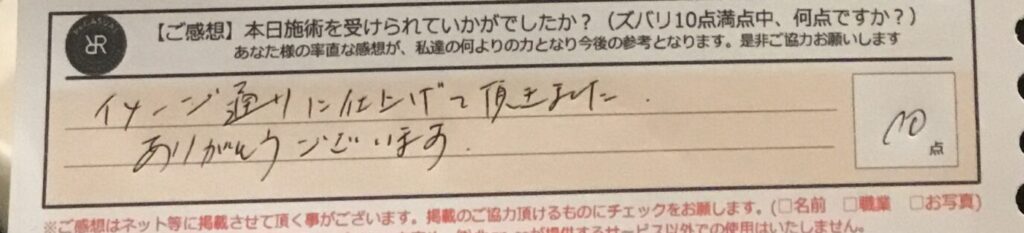 【ご感想】本日施術を受けられていかがでしたか？（ズバリ10点満点中、何点ですか？）
あなた様の率直な感想が、私達の何よりの力となり今後の参考となります。是非ご協力お願いします
イメージ通りに仕上げて頂きました.
ありがとうございます.
10
点
※ご感想はネット等に掲載させて頂く事がございます。掲載のご協力頂けるものにチェックをお願します。(□名前 □職業 □お写真)
が提供するサービス以外での使用はいたしません。